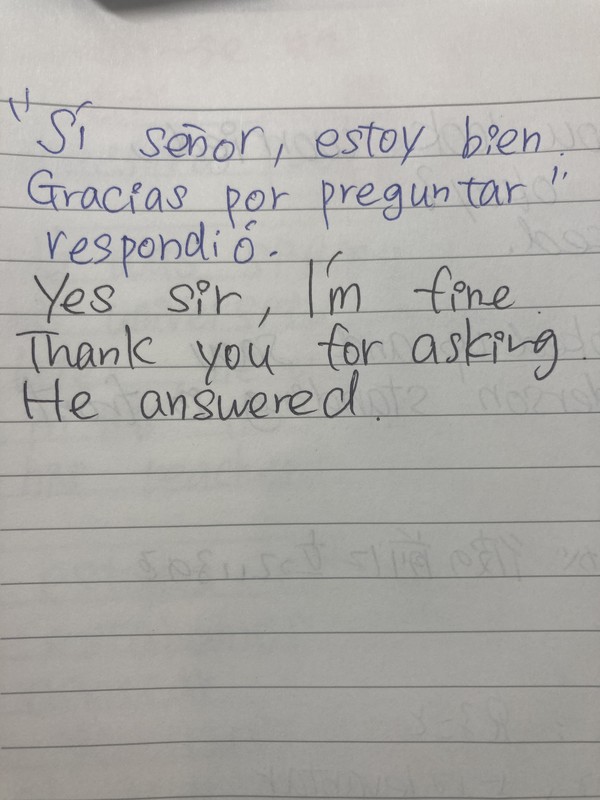 "Sí señor, estoy bien.
Gracias por preguntar"
respondió.
Yes sir, I'm fine.
Thank you for asking.
He answered.